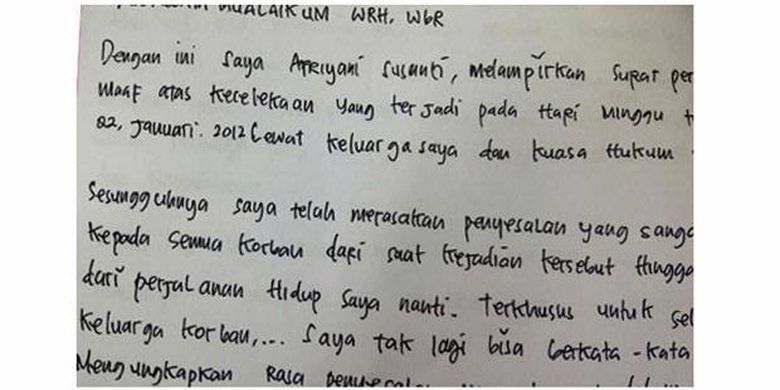 MUALAIKUM WRH. WbR
Dengan ini saya Afriyani Susanti, melampirkan surat per
maaf atas kecelekaan yang terjadi pada Hari Minggu t
22, Januari. 2012 Lewat keluarga saya dan kuasa Hukum
Sesungguhnya saya telah merasakan penyesalan yang sanga
kepada semua korban dari saat kejadian tersebut Hingga
dari perjalanan Hidup saya nanti. Terkhusus untuk sel
keluarga korban,... saya tak lagi bisa berkata-kata
Mengungkapkan Rasa